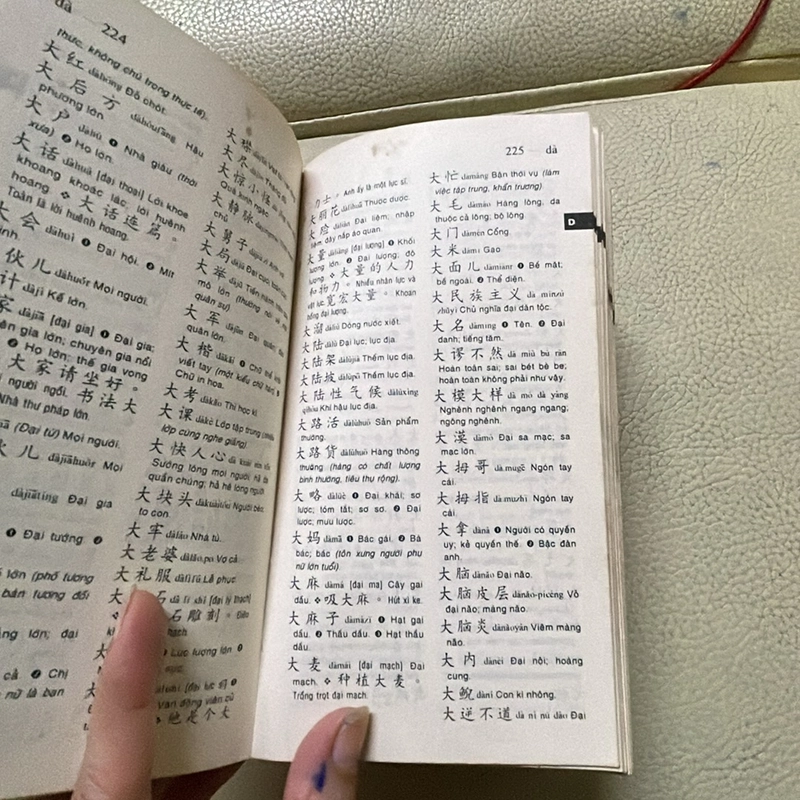 dà 224
thức, không chú trọng thực tế).
大红 dàhóng Đỏ chót.
大后方 dàhòufāng Hậu
phương lớn.
大户 dàhù ❶ Nhà giàu (thời
xưa) ❷ Họ lớn.
大话 dàhuà [đại thoại] Lời khoe
khoang khoác lác, lời huênh
hoang. ❖ 大话连篇。
Toàn là lời huênh hoang.
大会 dàhuì ❶ Đại hội. ❷ Mít
伙儿 dàhuǒr Mọi người.
计 dàjì Kế lớn.
家 dàjiā [đại gia] ❶ Đại gia;
gia lớn; chuyên gia nổi
❷ Họ lớn; thế gia vọng
大家请坐好。
người ngồi. 书法大
Nhà thư pháp lớn.
(Đại từ) Mọi người.
伙儿 dàjiāhuǒr Mọi
dàjiātíng Đại gia
❶ Đại tướng ❷
lớn (phố tương
bản tương đối
lớn; đại
cả ❷ Chị
nữ là bạn
大襟
大尽
大惊小怪
Quá kinh ngạc
大静脉
chủ
大舅子
大局 dàjú Đại cục
大举 dàjǔ Tiến hành
mô lớn (thường nói về
quân sự)
大军 dàjūn Đại quân;
quân lớn.
大楷 dàkǎi ❶ Chữ
viết tay (một kiểu chữ Hán)
Chữ in hoa.
大考 dàkǎo Thi học kì.
大课 dàkè Lớp tập trung
lớp cùng nghe giảng)
大快人心 dà kuài rén xīn
Sướng lòng mọi người, hả dạ
quần chúng; hả hê lòng người
大块头 dàkuàitóu Người béo,
to con.
大牢 dàláo Nhà tù.
大老婆 dàlǎo.po Vợ cả
大礼服 dàlǐfú Lễ phục
石 dà lǐ shí [đại lý thạch]
石雕刻。Điêu
❶ Lực lượng lớn. ❷
dàlìshì [đại lực sĩ] ❶
Vận động viên cử
他是个大
225 dà
力士。Anh ấy là một lực sĩ.
大丽花 dàlìhuā Thược dược.
大殓 dàliàn Đại liệm; nhập
liệm đậy nắp áo quan.
大量 dàliàng [đại lượng] ❶ Khối
lượng lớn. ❷ Đại lượng; độ
lượng. ❖ 大量的人力
和物力。Nhiều nhân lực và
vật lực 宽宏大量。Khoan
hồng đại lượng.
大溜 dàliù Dòng nước xiết.
大陆 dàlù Đại lục; lục địa.
大陆架 dàlùjià Thềm lục địa.
大陆坡 dàlùpō Thềm lục địa.
大陆性气候 dàlùxìng
qìhòu Khí hậu lục địa.
大路活 dàlùhuó Sản phẩm
thường.
大路货 dàlùhuò Hàng thông
thường (hàng có chất lượng
bình thường, tiêu thụ rộng).
大略 dàlüè ❶ Đại khái; sơ
lược; tóm tắt; sơ sơ. ❷ Đại
lược; mưu lược.
大妈 dàmā ❶ Bác gái. ❷ Bà
bác; bác (tôn xưng người phụ
nữ lớn tuổi).
大麻 dàmá [đại ma] Cây gai
dầu. ❖ 吸大麻。Hút xì ke.
大麻子 dàmázǐ ❶ Hạt gai
dầu. ❷ Thầu dầu. ❸ Hạt thầu
dầu.
大麦 dàmài [đại mạch] Đại
mạch. ❖ 种植大麦。
Trồng trọt đại mạch.
大忙 dàmáng Bận thời vụ (làm
việc tập trung, khẩn trương)
大毛 dàmáo Hàng lông, da
thuộc cả lông; bộ lông
大门 dàmén Cổng.
大米 dàmǐ Gạo
大面儿 dàmiànr ❶ Bề mặt;
bề ngoài. ❷ Thể diện.
大民族主义 dà mínzú
zhǔyì Chủ nghĩa đại dân tộc.
大名 dàmíng ❶ Tên. ❷ Đại
danh; tiếng tăm.
大谬不然 dà miù bù rán
Hoàn toàn sai; sai bét bè be;
hoàn toàn không phải như vậy.
大模大样 dà mó dà yàng
Nghênh nghênh ngang ngang;
ngông nghênh.
大漠 dàmò Đại sa mạc; sa
mạc lớn.
大拇哥 dà.mugē Ngón tay
cái.
大拇指 dà.muzhǐ Ngón tay
cái.
大拿 dàná ❶ Người có quyền
uy; kẻ quyền thế. ❷ Bậc đàn
anh.
大脑 dànǎo Đại não.
大脑皮层 dànǎo-pícéng Vỏ
đại não; màng não.
大脑炎 dànǎoyán Viêm màng
não.
大内 dànèi Đại nội; hoàng
cung.
大鲵 dàní Con kì nhông.
大逆不道 dà nì nù dào Đại
D